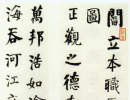 閻立本職
圖
正觀之德来
萬邦浩如
海吞河江